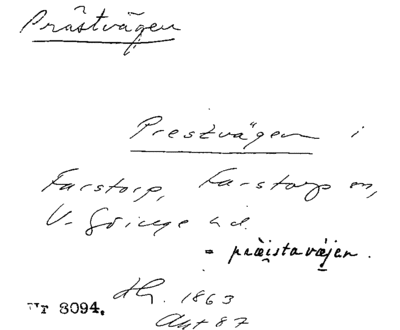 Prästvägen
Prestvägen i
Farstorp, Farstorp sn,
V. Göinge hd.
= präistaväjen.
1863
Nr 8094. Akt 87